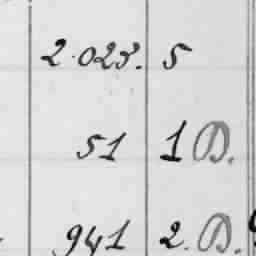 2.023. 5
51 1 D.
941 2. D.